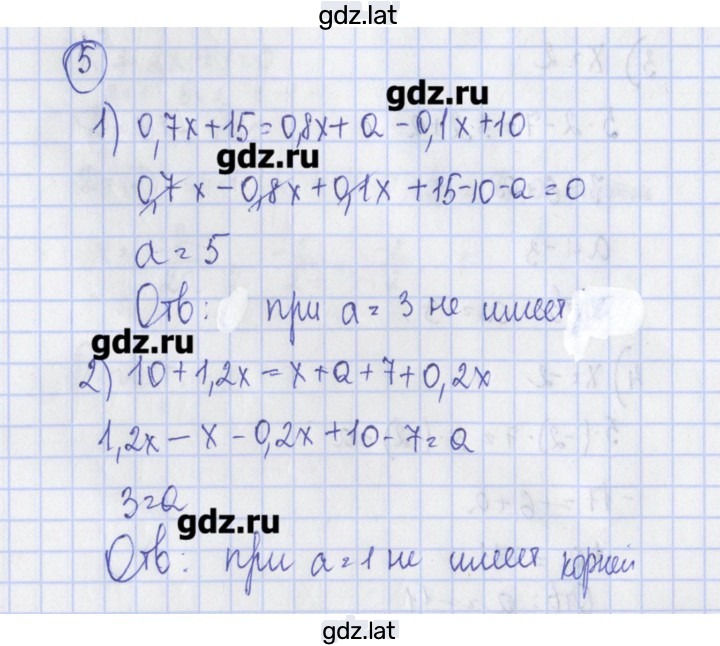 gdz.lat
5
gdz.ru
1) 0,7x+15=0,8x+a-0,1x+10
gdz.ru
0,7x-0,8x+0,1x+15-10-a=0
a=5
Отв: при a=3 не имеет
gdz.ru
2) 10+1,2x=x+a+7+0,2x
1,2x-x-0,2x+10-7=a
3=a
gdz.ru
Отв: при a=1 не имеет корней
gdz.lat